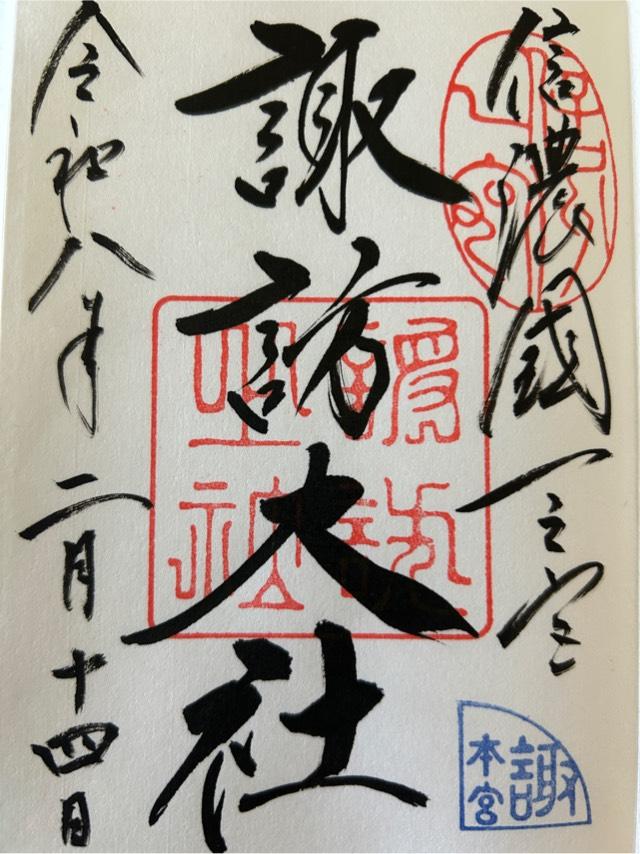 信濃國一之宮
諏訪大社
令和八年二月十四日
諏
本宮